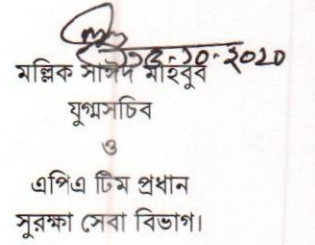 ১৫-১০-২০২০
মল্লিক সাঈদ মাহবুব
যুগ্মসচিব
ও
এপিএ টিম প্রধান
সুরক্ষা সেবা বিভাগ।